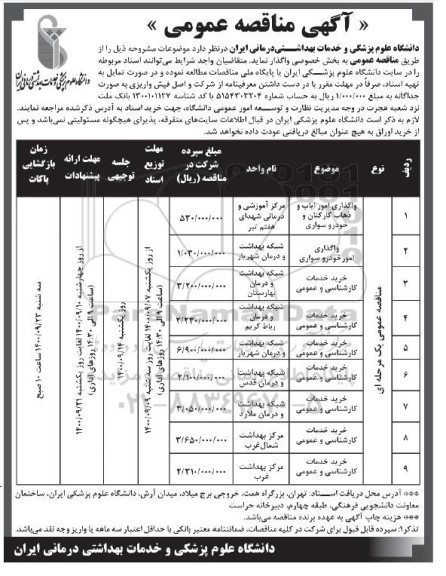 « آگهی مناقصه عمومی »
دانشگاه علوم پزشکی و خدمات بهداشتی‌درمانی ایران درنظر دارد موضوعات مشروحه ذیل را از
طریق مناقصه عمومی به بخش خصوصی واگذار نماید. متقاضیان واجد شرایط می‌توانند اسناد مربوطه
را در سایت دانشگاه علوم پزشکی ایران یا پایگاه ملی مناقصات مطالعه نموده و در صورت تمایل به
تهیه اسناد، صرفاً در مهلت مقرر با در دست داشتن معرفینامه از شرکت و اصل فیش واریزی به صورت
جداگانه به مبلغ ۱/۰۰۰/۰۰۰ ریال به حساب شماره با کد شناسه بانک ملت
نزد شعبه هجرت در وجه مدیریت نظارت و توسعه امور عمومی دانشگاه، جهت خرید اسناد به آدرس ذکرشده مراجعه نمایند.
لازم به ذکر است دانشگاه علوم پزشکی ایران در قبال اطلاعات سایت‌های متفرقه، پذیرای هیچگونه مسئولیتی نمی‌باشد و پس
از خرید اوراق به هیچ عنوان مبالغ دریافتی عودت داده نخواهد شد.
ردیف نوع موضوع نام واحد مبلغ سپرده شرکت در مناقصه (ریال) مهلت توزیع اسناد جلسه توجیهی مهلت ارائه پیشنهادات زمان بازگشایی پاکات
۱ واگذاری امور ایاب و ذهاب کارکنان و خودرو سواری مرکز آموزشی و درمانی شهدای هفتم تیر ۵۳۰/۰۰۰/۰۰۰
۲ واگذاری امور خودرو سواری شبکه بهداشت و درمان شهریار ۱/۰۳۰/۰۰۰/۰۰۰
۳ خرید خدمات کارشناسی و عمومی شبکه بهداشت و درمان بهارستان ۳/۲۰۰/۰۰۰/۰۰۰
۴ خرید خدمات کارشناسی و عمومی شبکه بهداشت و درمان رباط کریم ۲/۲۳۰/۰۰۰/۰۰۰
۵ خرید خدمات کارشناسی و عمومی شبکه بهداشت و درمان شهریار ۶/۹۰۰/۰۰۰/۰۰۰
۶ خرید خدمات کارشناسی و عمومی شبکه بهداشت و درمان قدس ۲/۱۰۰/۰۰۰/۰۰۰
۷ خرید خدمات کارشناسی و عمومی شبکه بهداشت و درمان ملارد ۳/۰۵۰/۰۰۰/۰۰۰
۸ خرید خدمات کارشناسی و عمومی مرکز بهداشت شمال‌غرب ۳/۶۵۰/۰۰۰/۰۰۰
۹ خرید خدمات کارشناسی و عمومی مرکز بهداشت غرب ۲/۳۱۰/۰۰۰/۰۰۰
مناقصه عمومی یک مرحله ای
از روز یکشنبه ۱۴۰۰/۰۹/۰۷ لغایت روز سه‌شنبه ۱۴۰۰/۰۹/۰۹ (ساعت ۹ الی ۱۴:۳۰ روزهای اداری)
روز یکشنبه ۱۴۰۰/۰۹/۱۴
از روز چهارشنبه ۱۴۰۰/۰۹/۱۰ لغایت روز یکشنبه ۱۴۰۰/۰۹/۲۱ (ساعت ۹ الی ۱۴:۳۰ روزهای اداری)
سه شنبه ۱۴۰۰/۰۹/۲۳ ساعت ۱۰ صبح
*** آدرس محل دریافت اسناد: تهران، بزرگراه همت، خروجی برج میلاد، میدان آرش، دانشگاه علوم پزشکی ایران، ساختمان
معاونت دانشجویی فرهنگی، طبقه چهارم، دبیرخانه حراست
*** هزینه چاپ آگهی به عهده برنده مناقصه می‌باشد.
تذکر۱: سپرده قابل قبول برای شرکت در کلیه مناقصات، ضمانتنامه معتبر بانکی با حداقل اعتبار سه ماهه یا واریز وجه نقد می‌باشد.
دانشگاه علوم پزشکی و خدمات بهداشتی درمانی ایران